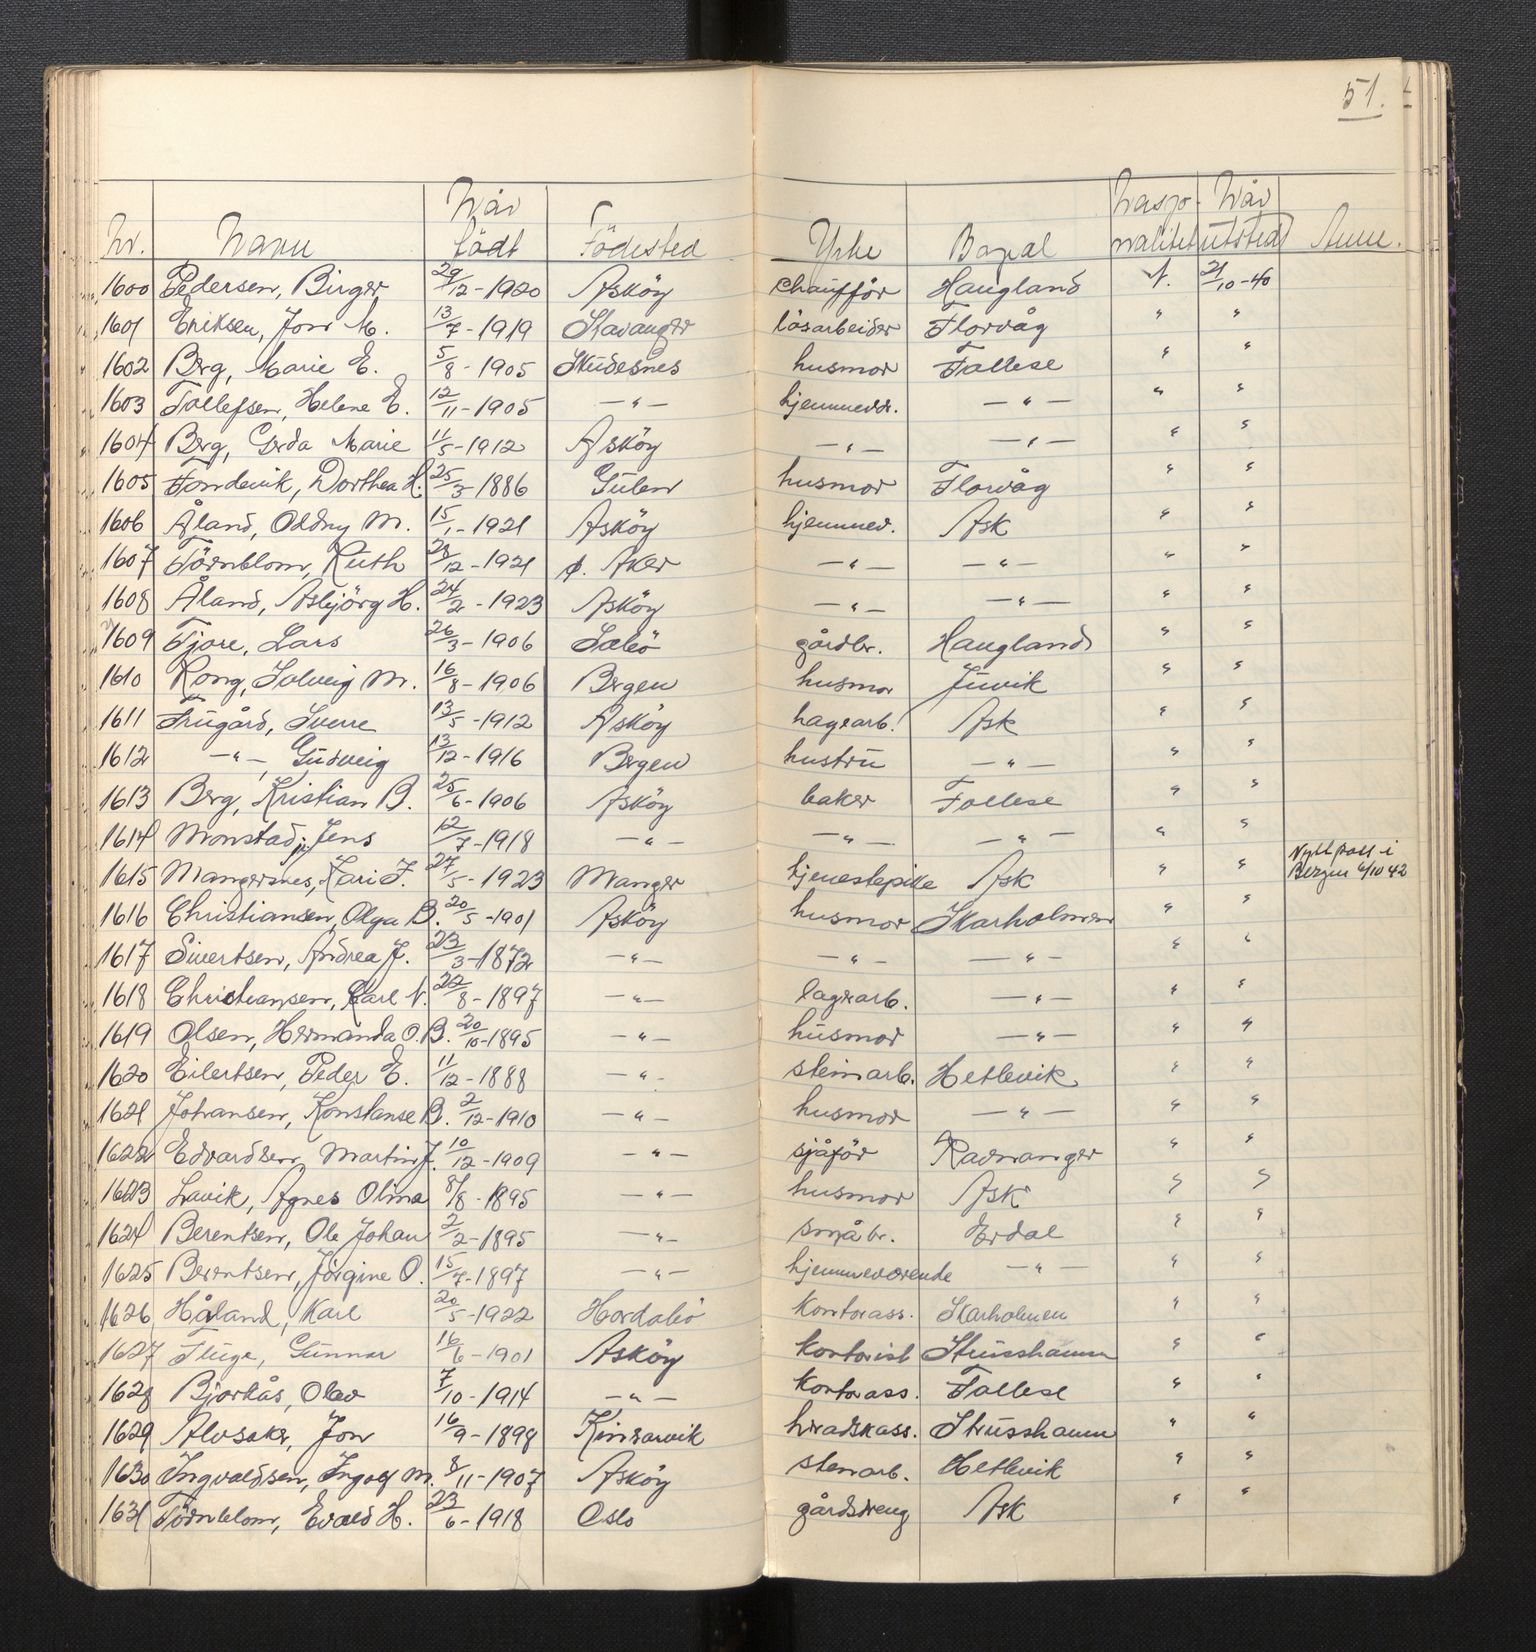 51.
Nr. Navn Når födt Födested Yrke Bopel Nasjonalitet Når utsted Anm.
1600 Pedersen, Birger 29/12-1920 Asköy chaufför Haugland N. 21/10-40
1601 Eriksen, Jon M. 13/7-1919 Stavanger lösarbeider Florvåg " "
1602 Berg, Marie E. 5/8-1905 Skudesnes husmor Follese " "
1603 Tollefsen, Helene E. 12/11-1905 -"- hjemmevær. -"- " "
1604 Berg, Gerda Marie 11/5-1912 Asköy -"- -"- " "
1605 Fondevik, Dorthea H. 25/3-1886 Gulen husmor Florvåg " "
1606 Åland, Oddny M. 15/1-1921 Asköy hjemmev. Ask " "
1607 Törnblom, Ruth 28/12-1921 Ø. Aker -"- -"- " "
1608 Åland, Asbjörg H. 24/2-1923 Asköy -"- -"- " "
1609 Tjore, Lars 26/3-1906 Sæbö gårdbr. Haugland " "
1610 Rong, Solveig M. 16/8-1906 Bergen husmor Juvik " "
1611 Trugård, Sverre 13/5-1912 Asköy hagearb. Ask " "
1612 -"-, Gudveig 13/12-1916 Bergen hustru -"- " "
1613 Berg, Kristian B. 25/6-1906 Asköy baker Follese " "
1614 Monstad, jr, Jens 12/7-1918 -"- -"- -"- " "
1615 Mangersnes, Kari J. 27/5-1923 Manger tjenestepike Ask " " Nytt pass i Bergen 6/10 42
1616 Christiansen, Olga B. 20/5-1901 Asköy husmor Skarholmen " "
1617 Sivertsen, Andrea J. 23/3-1872 -"- -"- -"- " "
1618 Christiansen, Karl N. 22/8-1897 -"- lagerarb. -"- " "
1619 Olsen, Hermanda O. B. 20/10-1895 -"- husmor -"- " "
1620 Eilertsen, Peder E. 11/12-1888 -"- steinarb. Hetlevik " "
1621 Johansen, Konstanse B. 2/12-1910 -"- husmor -"- " "
1622 Edvardsen, Martin J. 10/12-1909 -"- sjåför Ravnanger " "
1623 Lavik, Agnes Olma 8/8-1895 -"- husmor Ask " "
1624 Berentsen, Ole Johan 2/2-1895 -"- småbr. Erdal " "
1625 Berentsen, Jörgine O. 15/7-1897 -"- hjemmeværende -"- " "
1626 Håland, Karl 20/5-1922 Hordabö kontorass. Skarholmen " "
1627 Fluge, Gunnar 16/6-1901 Asköy kontorist Strusshamn " "
1628 Bjorkås, Olav 7/10-1914 -"- kontorass. Follese " "
1629 Alvsaker, Jon 16/9-1898 Kinsarvik heradskass. Strusshamn " "
1630 Ingvaldsen, Ingolf M. 8/11-1907 Asköy stenarb. Hetlevik " "
1631 Törnblom, Evald H. 23/6-1918 Oslo gårdsdreng Ask " "